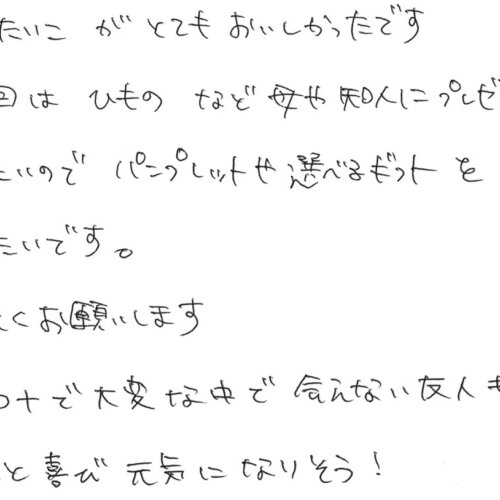 たいこ がとてもおいしかったです
回は ひもの など 母や知人にプレゼ
たいので パンフレットや選べるギフトを
たいです。
しくお願いします
ロナで大変な中で 会えない友人も
と喜び元気になりそう!